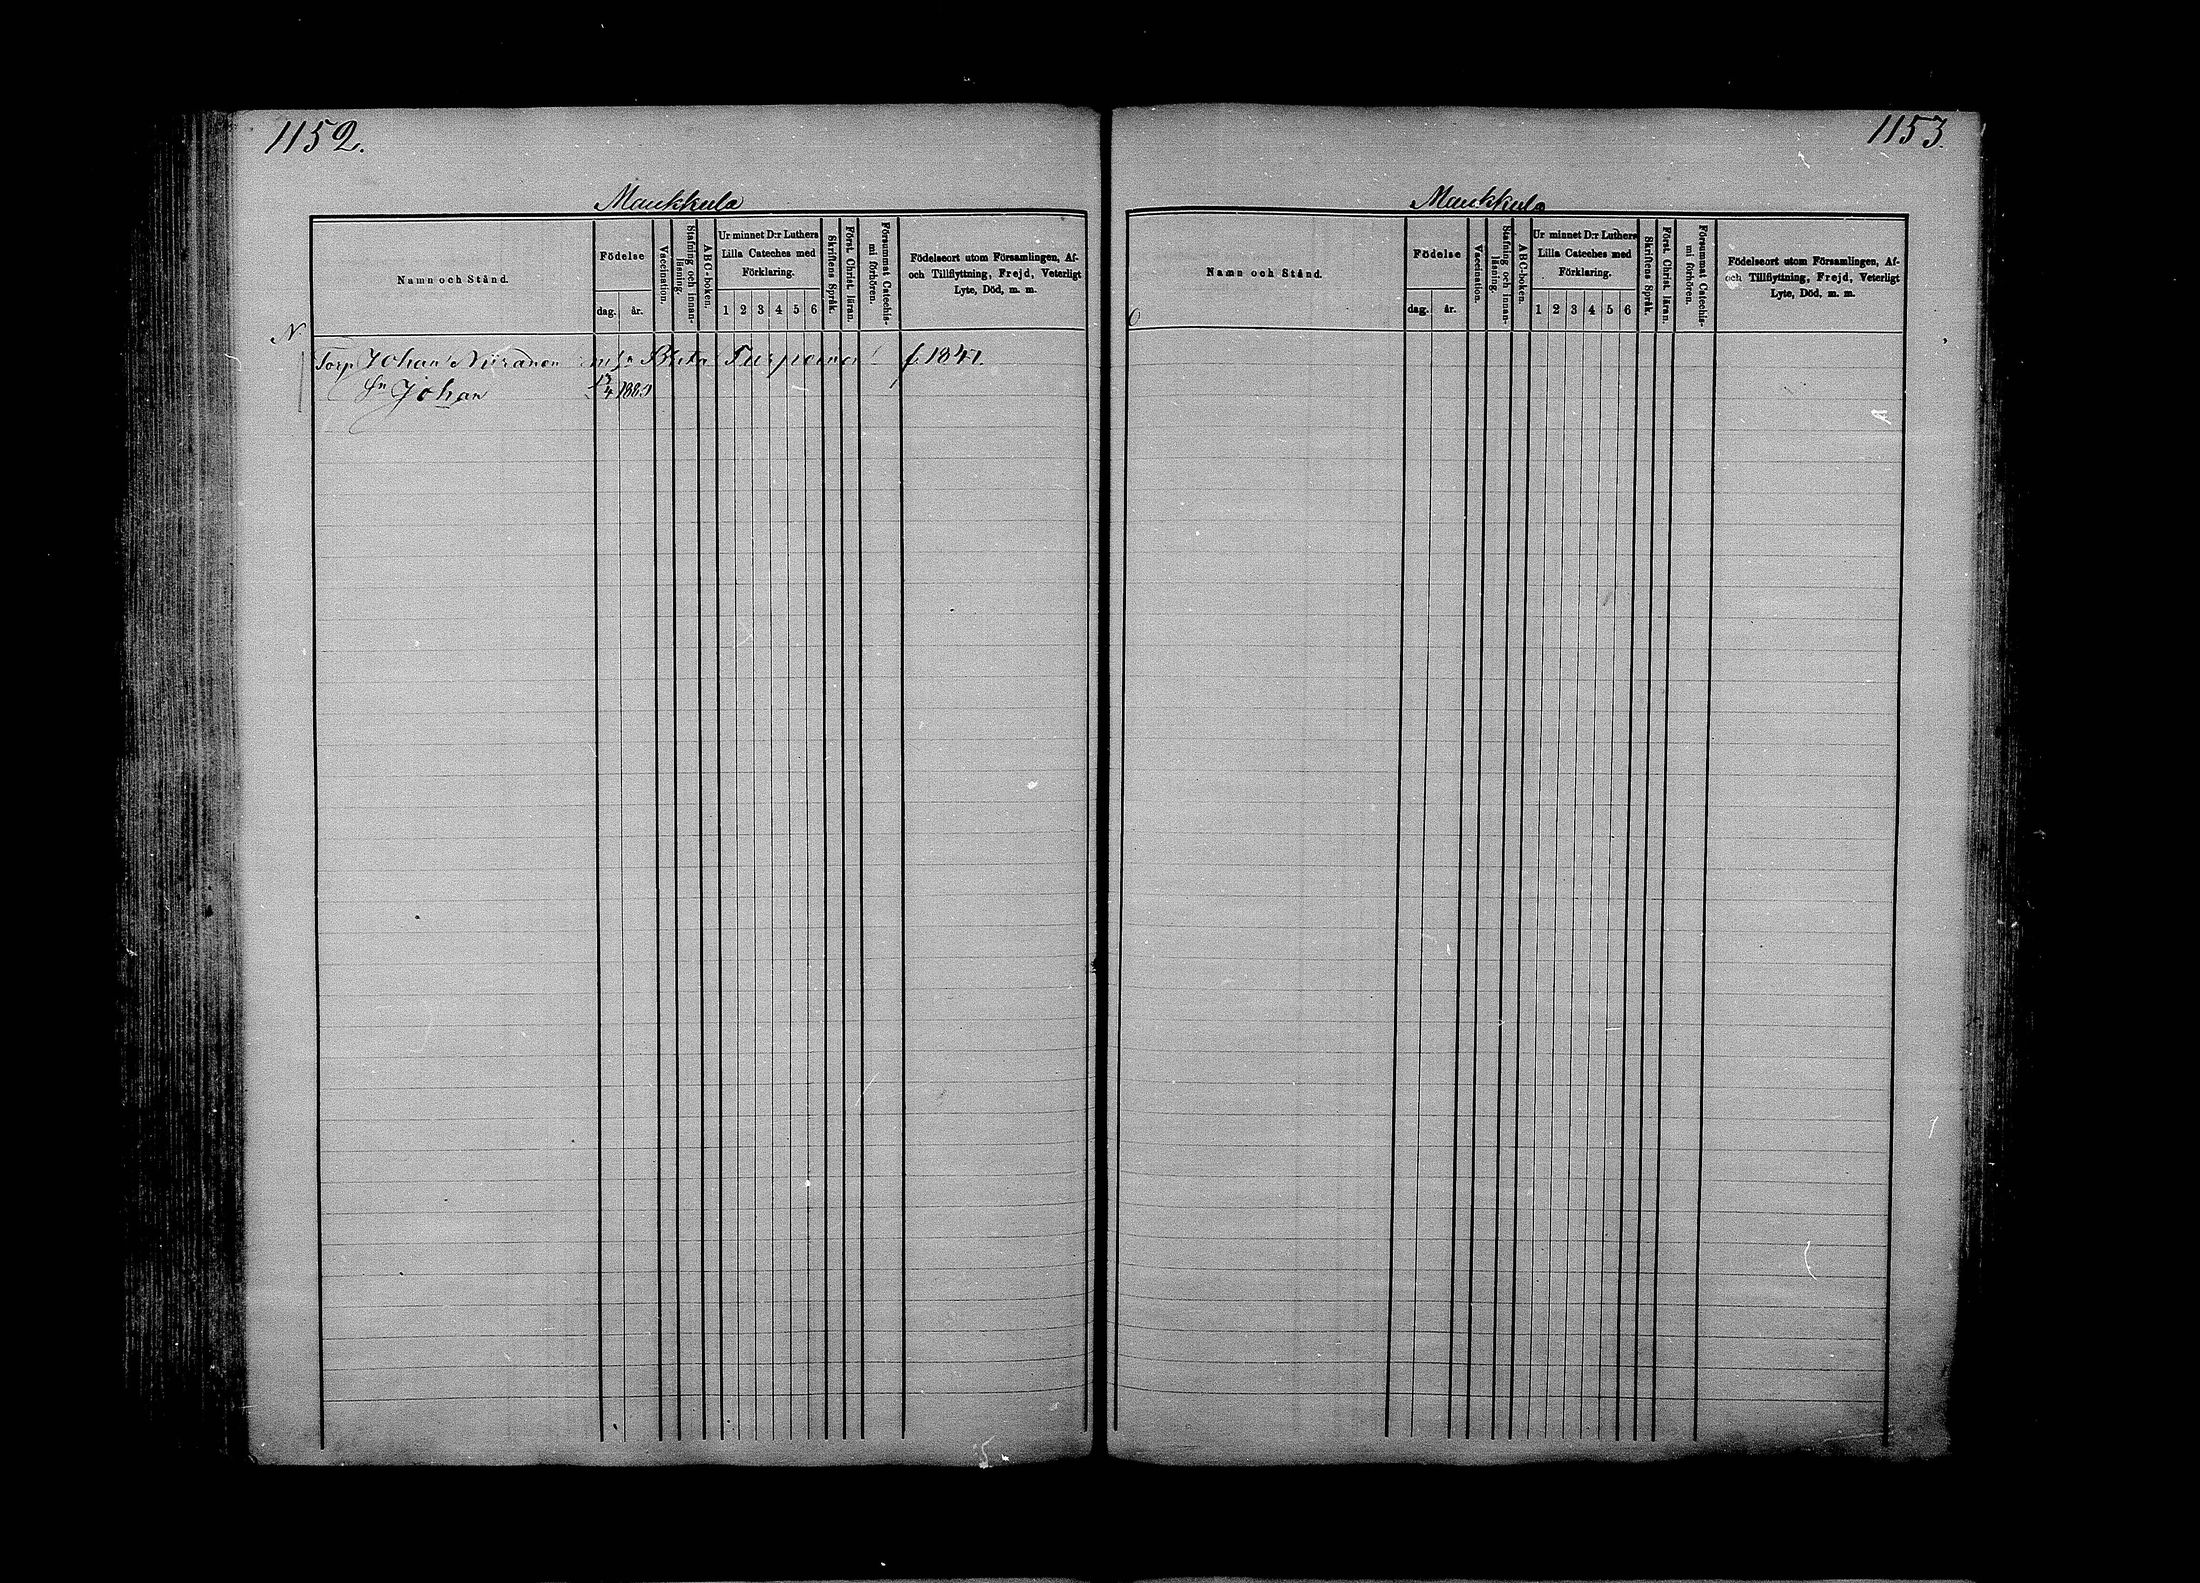 1152.
Maukkula
Namn och Stånd.
Födelse
dag.
år.
Vaccination.
Stafning och innan-
läsning.
ABC-boken.
Ur minnet D:r Luthers
Lilla Cateches med
Förklaring.
1 2 3 4 5 6
Skriftens Språk.
Först. Christ. läran.
Försummat Catechis-
mi förhören.
Födelseort utom Församlingen, Af-
och Tillflyttning, Frejd, Veterligt
Lyte, Död, m. m.
N
Torp Johan Niiranen Brita Turpeinen f. 1841.
Sn Johan
1153.
Maukkula
Namn och Stånd.
Födelse
dag.
år.
Vaccination.
Stafning och innan-
läsning.
ABC-boken.
Ur minnet D:r Luthers
Lilla Cateches med
Förklaring.
1 2 3 4 5 6
Skriftens Språk.
Först. Christ. läran.
Försummat Catechis-
mi förhören.
Födelseort utom Församlingen, Af-
och Tillflyttning, Frejd, Veterligt
Lyte, Död, m. m.